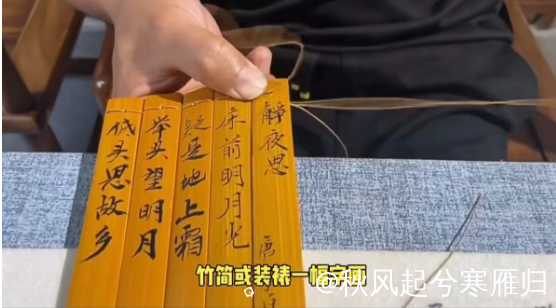 静夜思 唐
床前明月光
疑是地上霜
举头望明月
低头思故乡
竹简或装裱一幅字画
@秋风起兮寒雁归